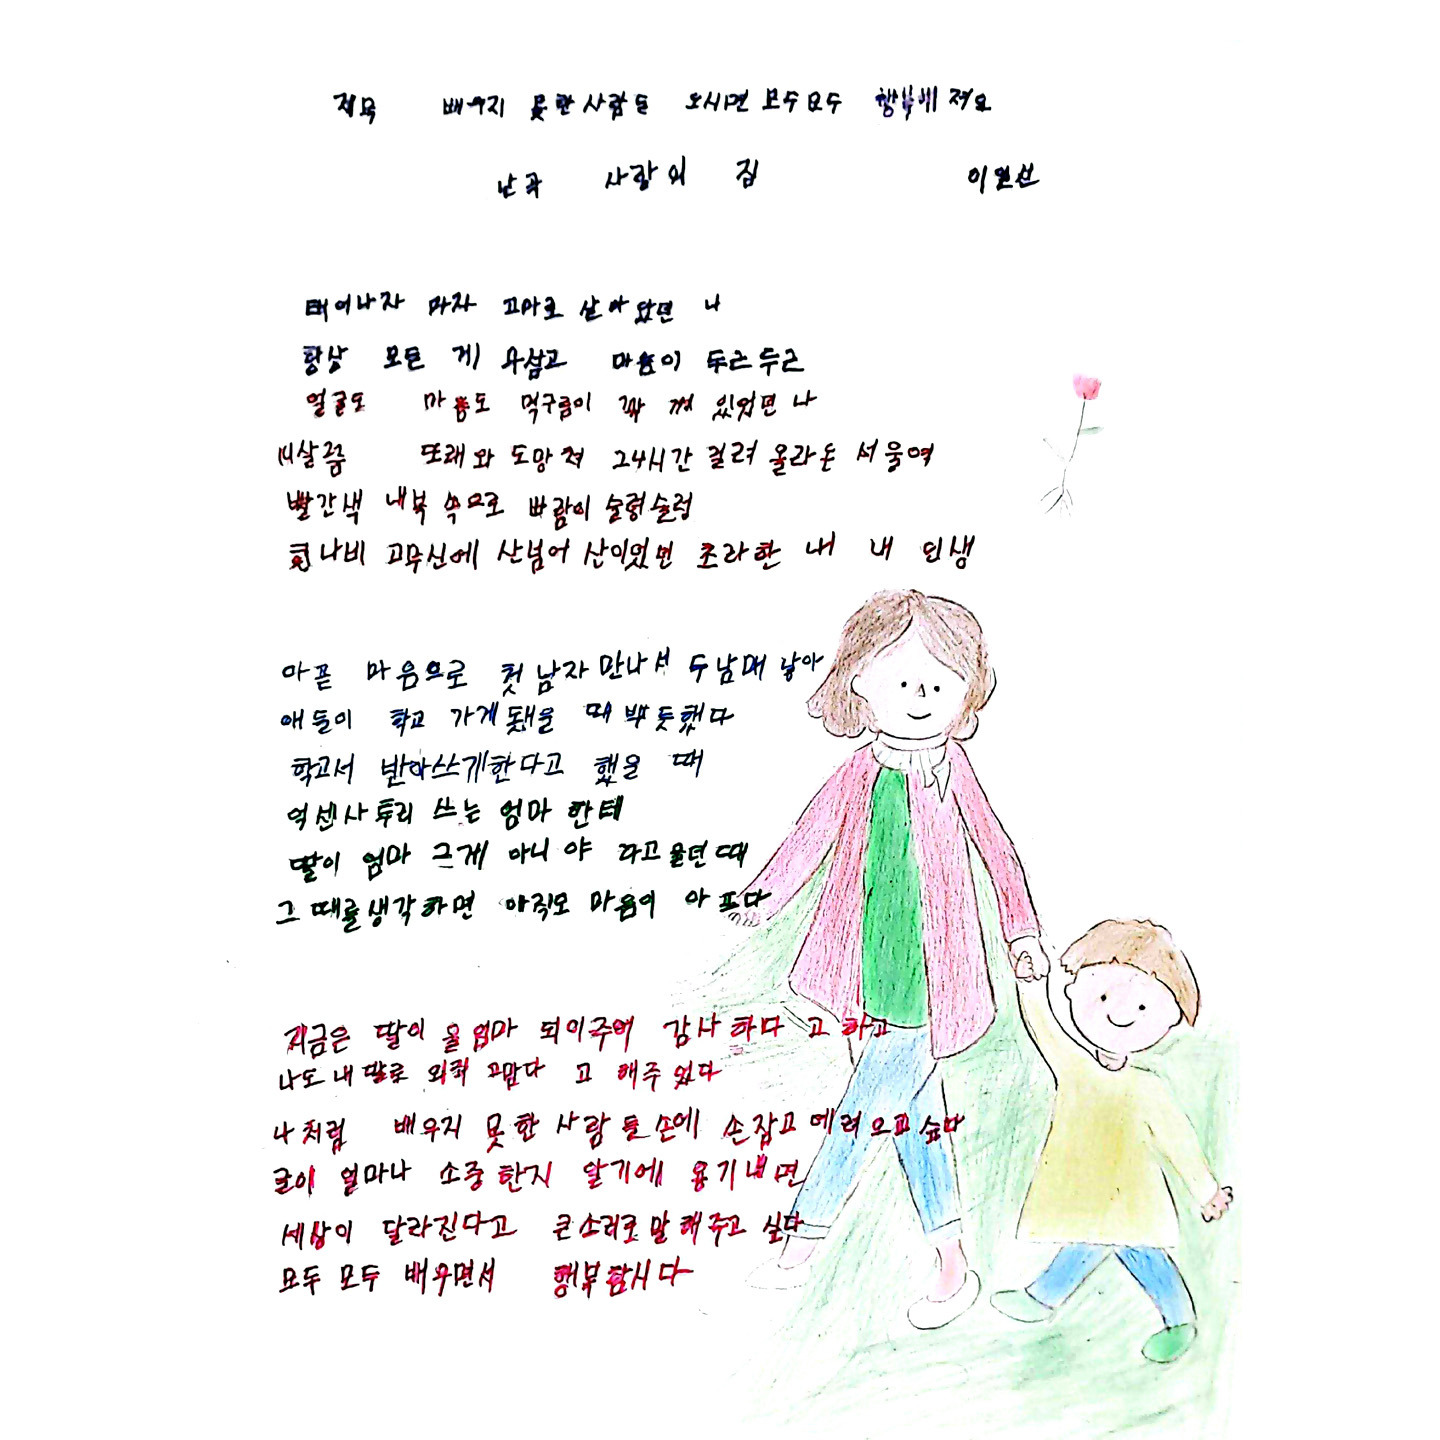 제목 배우지 못한 사람들 오시면 모두모두 행복해져요
난곡 사랑의 집 이연선
태어나자 마자 고아로 살아 았던 나
항상 모든 게 무섭고 마음이 두근두근
얼굴도 마음도 먹구름이 꽉 껴 있었던 나
써살쯤 또래와 도망쳐 24시간 걸려 올라온 서울역
빨간색 내복 속으로 바람이 술렁술렁
흰나비 고무신에 산넘어 산이였던 초라한 내 내 인생
아픈 마음으로 첫 남자 만나서 두남매 낳아
애들이 학교 가게됐을 때 뿌듯했다
학교서 받아쓰기한다고 했을 때
억센사투리 쓰는 엄마 한테
딸이 엄마 그게 아니 야 라고 울던 때
그 때를생각하면 아직도 마음이 아프다
지금은 딸이 울 엄마 되이주어 감사 하다 고 하고
나도 내 딸로 와줘 고맙다 고 해주 었다
나처럼 배우지 못한 사람 들 손에 손잡고 데려 오고 싶다
글이 얼마나 소중 한지 알기에 용기내면
세상이 달라진다고 큰소리로 말 해주고 싶다
모두 모두 배우면서 행복 합시다